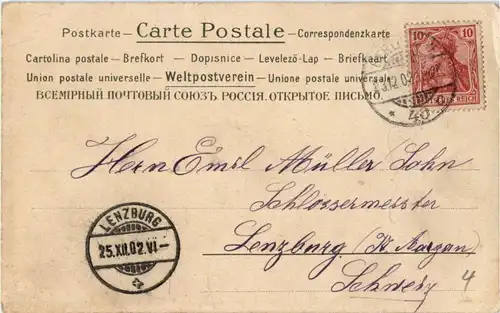 Postkarte — Carte Postale — Correspondenzkarte
Cartolina postale — Brefkort — Dopisnice — Levelező-Lap — Briefkaart
Union postale universelle — Weltpostverein — Unione postale universale
ВСЕМІРНЫЙ ПОЧТОВЫЙ СОЮЗЪ. РОССІЯ. ОТКРЫТОЕ ПИСЬМО.
10 10
REICH
* 40
Herrn Emil Müller Sohn
Schlossermeister
Lenzburg (Kt. Aargau)
Schweiz
4
LENZBURG
25.XII.02.VI–